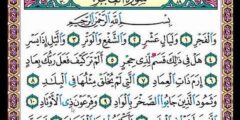 سورة الفجر
بِسْمِ اللَّهِ الرَّحْمَٰنِ الرَّحِيمِ
وَالْفَجْرِ ١ وَلَيَالٍ عَشْرٍ ٢ وَالشَّفْعِ وَالْوَتْرِ ٣ وَاللَّيْلِ إِذَا يَسْرِ
٤ هَلْ فِي ذَٰلِكَ قَسَمٌ لِّذِي حِجْرٍ ٥ أَلَمْ تَرَ كَيْفَ فَعَلَ رَبُّكَ بِعَادٍ
٦ إِرَمَ ذَاتِ الْعِمَادِ ٧ الَّتِي لَمْ يُخْلَقْ مِثْلُهَا فِي الْبِلَادِ ٨
وَثَمُودَ الَّذِينَ جَابُوا الصَّخْرَ بِالْوَادِ ٩ وَفِرْعَوْنَ ذِي الْأَوْتَادِ ١٠